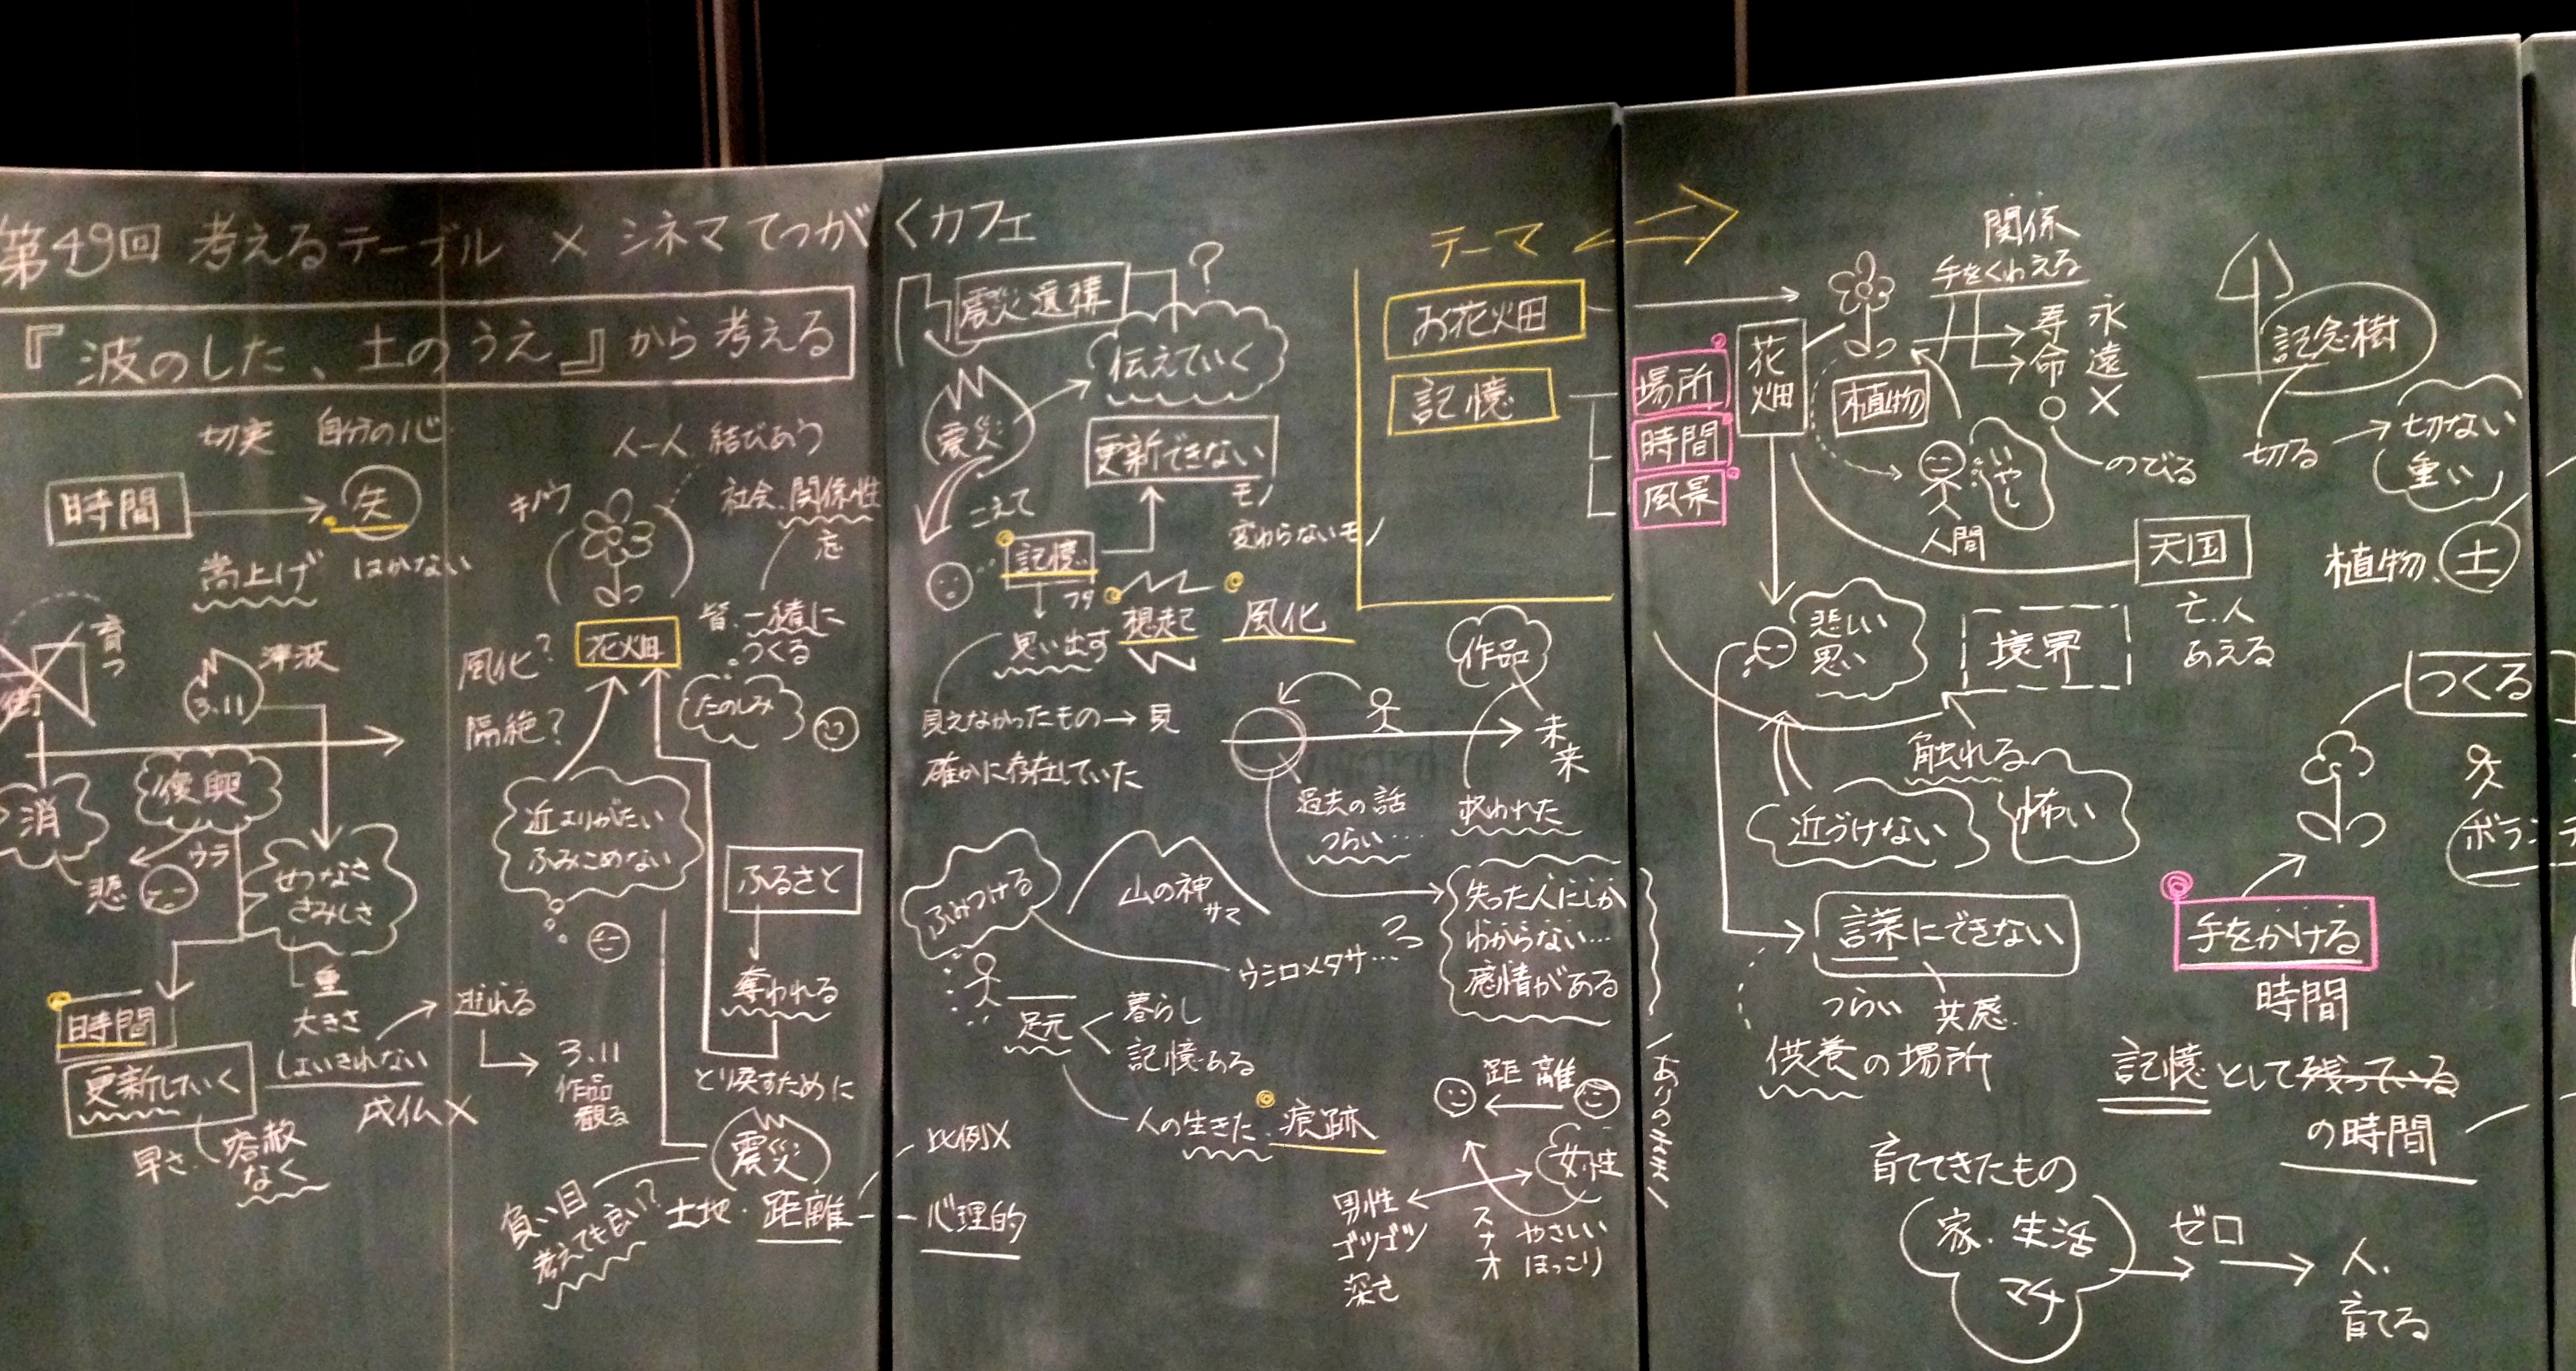 第49回 考えるテーブル × シネマ てつがくカフェ
『波のした、土のうえ』から考える
切実 自分の心
時間
失
嵩上げ
はかない
育つ
街
津波
3.11
消
復興
悲
ウラ
せつなさ
さみしさ
時間
更新していく
早さ
容赦
なく
重
大きさ
しょいきれない
成仏 ×
逃れる
3.11
作品
観る
人一人 結びあう
キノウ
社会、関係性
忘
花畑
皆、一緒に
つくる
たのしみ
風化?
隔絶?
近よりがたい
ふみこめない
ふるさと
奪われる
とり戻すために
震災
負い目
考えても良い?
土地・距離
比例×
心理的
震災遺構
?
伝えていく
震災
更新できない
モノ
変わらないモノ
こえて
記憶
フタ
思い出す
想起
風化
見えなかったもの→見
確かに存在していた
作品
未来
過去の話
つらい…
救われた
ふみつける
山の神
サマ
ウシロメタサ…
失った人にしか
わからない…
感情がある
足元
暮らし
記憶ある
人の生きた 痕跡
距離
女性
男性
ゴツゴツ
深さ
スナオ
やさしい
ほっこり
ありのまま
テーマ
お花畑
記憶
場所
時間
風景
花畑
植物
関係
手をくわえる
寿命 ○
永遠 ×
のびる
いやし
人間
記念樹
切る
切ない
重い
天国
亡、人
あえる
植物、土
悲しい
思い
境界
触れる
近づけない
怖い
つくる
言葉にできない
つらい
共感
供養の場所
手をかける
時間
記憶として残っている
の時間
育ててきたもの
家・生活
マチ
ゼロ
人、
育てる